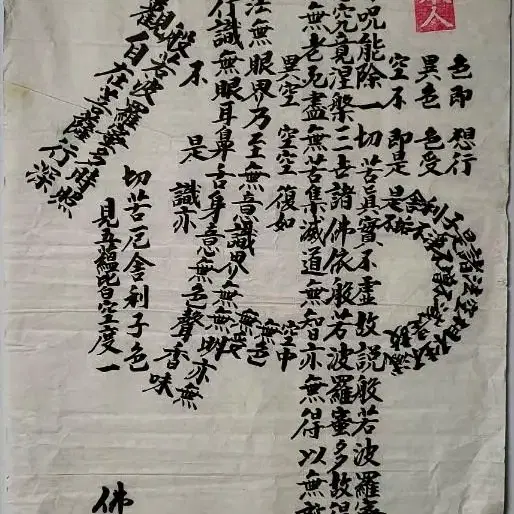 人
色即
想行
異色
色受
空不
即是
是
舍利子是諸法空相不
呪能除一切苦真實不虛故說般若波羅蜜
究竟涅槃三世諸佛依般若波羅蜜多故得
無老死盡無苦集滅道無智亦無得以無
異空
空空
復如
空中
無色
無眼界乃至無意識界無無明亦無
行識無眼耳鼻舌身意無色聲香味
不
是
識亦
般若波羅蜜多時照
觀自在菩薩行深
切苦厄舍利子色
見五蘊皆空度一
佛